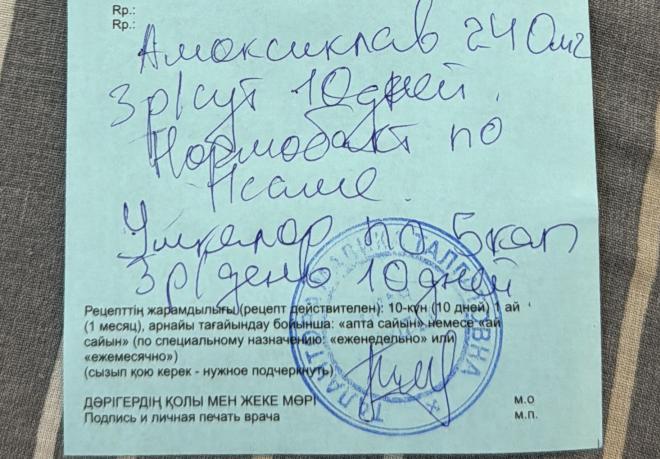 Rp.:
Rp.:
Амоксиклав 240мг
3 р/сут 10 дней.
Нормобакт по
1 саше.
по 5 кап
3 р/день 10 дней
Рецепттің жарамдылығы (рецепт действителен): 10-күн (10 дней) 1 ай
(1 месяц), арнайы тағайындау бойынша: «апта сайын» немесе «ай
сайын» (по специальному назначению: «еженедельно» или
«ежемесячно»)
(сызып қою керек - нужное подчеркнуть)
ДӘРІГЕРДІҢ ҚОЛЫ МЕН ЖЕКЕ МӨРІ м.о
Подпись и личная печать врача м.п.